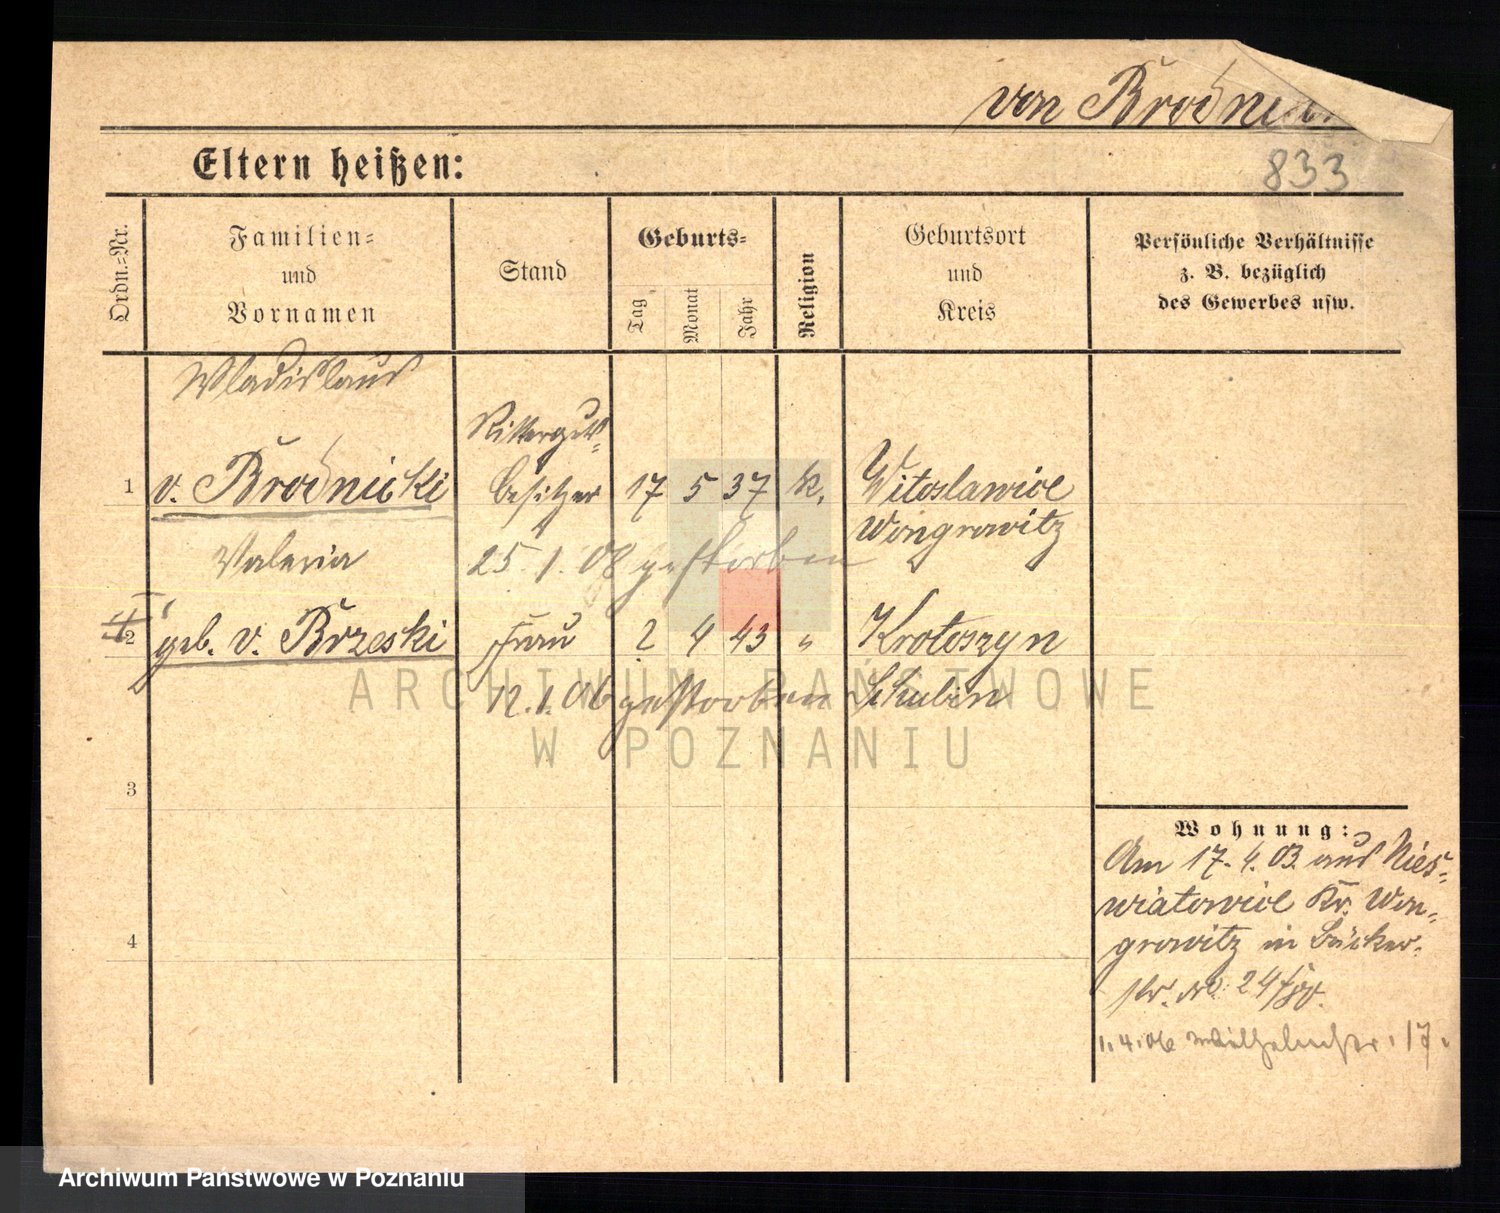 von Brodnicki
833
Eltern heißen:
Ordn.-Nr.
Familien-
und
Vornamen
Stand
Geburts-
Tag
Monat
Jahr
Religion
Geburtsort
und
Kreis
Persönliche Verhältnisse
z. B. bezüglich
des Gewerbes usw.
Wladislaus
1 v. Brodnicki
Ritterguts-
besitzer 17 5 37 k. Witoslawice
Wongrowitz
Valeria
25. 1. 08 gestorben
2 geb. v. Brzeski Frau 2 4 43 " Krotoszyn
12. 1. 06 gestorben Schubin
3
4
Wohnung:
Am 17. 4. 03. aus Nies-
wiatowice Kr. Won-
growitz in Bäcker-
str. No. 24
1. 4. 06 Wilhelmstr. 17.
ARCHIWUM PAŃSTWOWE
W POZNANIU
Archiwum Państwowe w Poznaniu